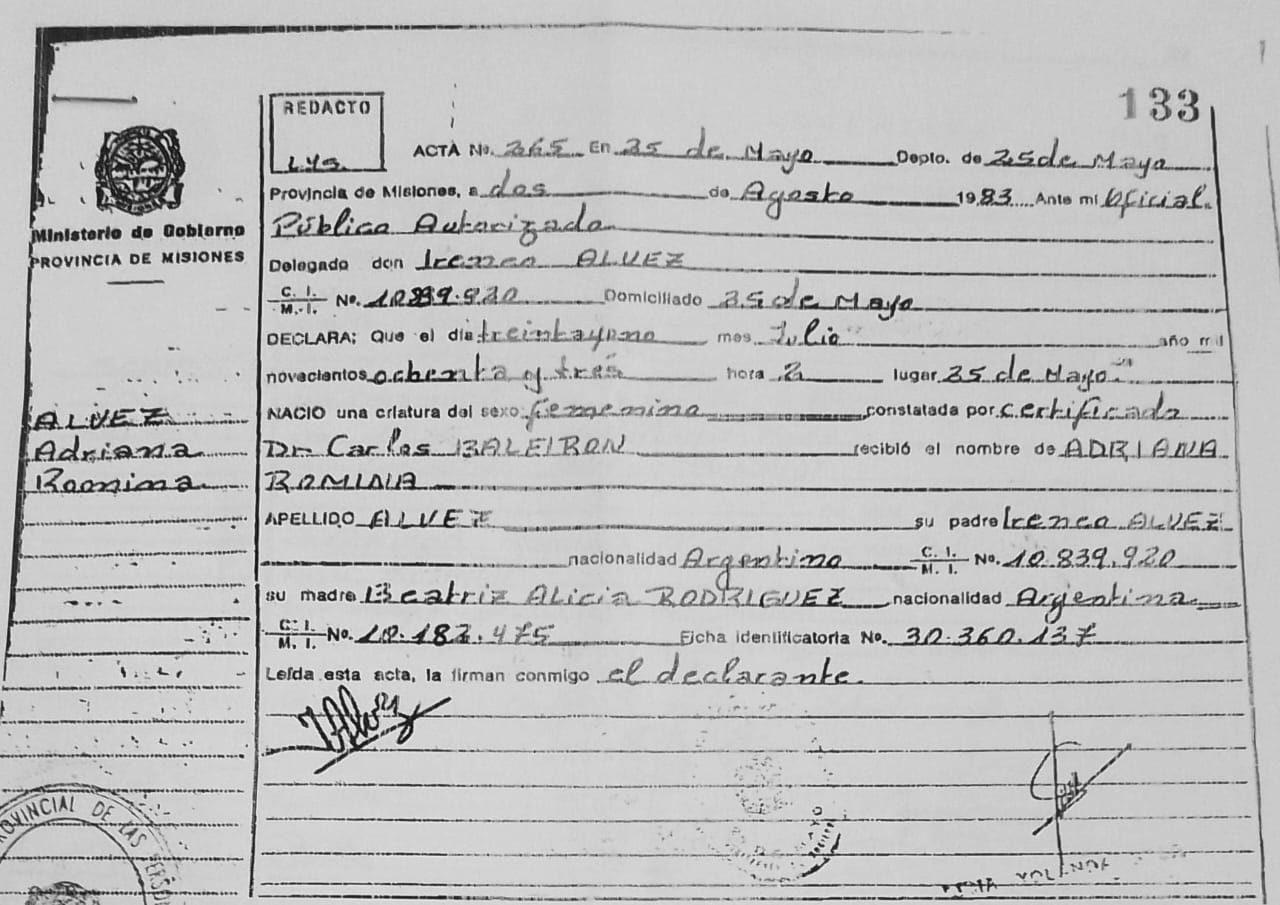 133
REDACTO
L.Y.S.
ACTA No. 265 En 25 de Mayo Depto. de 25 de Mayo
Provincia de Misiones, a dos de Agosto 1983 Ante mi Oficial
Público Autorizado
Delegado don Ireneo ALVEZ
C. I. M. I. No. 10.839.920 Domiciliado 25 de Mayo
DECLARA; Que el día treintayuno mes Julio año mil
novecientos ochenta y tres hora 2 lugar 25 de Mayo
NACIO una criatura del sexo femenino constatada por certificado
Dr. Carlos BALEIRON recibió el nombre de ADRIANA
ROMINA
APELLIDO ALVEZ su padre Ireneo ALVEZ
nacionalidad Argentino C. I. M. I. No. 10.839.920
su madre Beatriz Alicia RODRIGUEZ nacionalidad Argentina
C. I. M. I. No. 10.183.475 Ficha identificatoria No. 30.360.137
Leída esta acta, la firman conmigo el declarante.
Ministerio de Gobierno
PROVINCIA DE MISIONES
ALVEZ
Adriana
Romina
PROVINCIAL DE LAS PERSO
YOLANDA